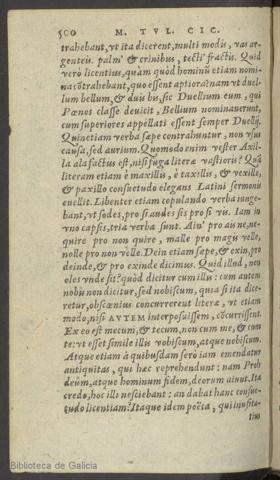 500 M. TVL. CIC.
trahebant, vt ita dicerent, multi modis, vas ar-
genteis. palm' & crinibus, tecti fractis. Quid
verò licentius, quàm quòd hominũ etiam nomi-
na cõtrahebant, quo essent aptiora? nam vt duel-
lum bellum, & duis bis, sic Duellium eum, qui
Pœnos classe deuicit, Bellium nominauerunt,
cùm superiores appellati essent semper Duellij.
Quinetiam verba sæpe contrahuntur, non vsus
causa, sed aurium. Quomodo enim vester Axil-
la ala factus est, nisi fuga literæ vastioris? Quã
literam etiam è maxillis, è taxillis, & vexillo,
& paxillo consuetudo elegans Latini sermonis
euellit. Libenter etiam copulando verba iunge-
bant, vt sodes, pro si audes sis pro si vis. Iam in
vno capsis, tria verba sunt. Ain' pro ais ne, ne-
quire pro non quire, malle pro magis velle,
nolle pro non velle. Dein etiam sæpe, & exin, pro
deinde, & pro exinde dicimus. Quid illud, non
oles vnde sit? quòd dicitur cum illis: cum autem
nobis non dicitur, sed nobiscum, quia si ita dice-
retur, obscœnius concurrerent literæ, vt etiam
modo, nisi AVTEM interposuissem, cõcurrissent.
Ex eo est mecum, & tecum, non cum me, & cum
te: vt esset simile illis vobiscum, atque nobiscum.
Atque etiam à quibusdam serò iam emendatur
antiquitas, qui hæc reprehendunt: nam Proh
deûm, atque hominum fidem, deorum aiunt. Ita
credo, hoc illi nesciebant: an dabat hanc consue-
tudo licentiam? Itaque idem poëta, qui inusita-
tius
Biblioteca de Galicia